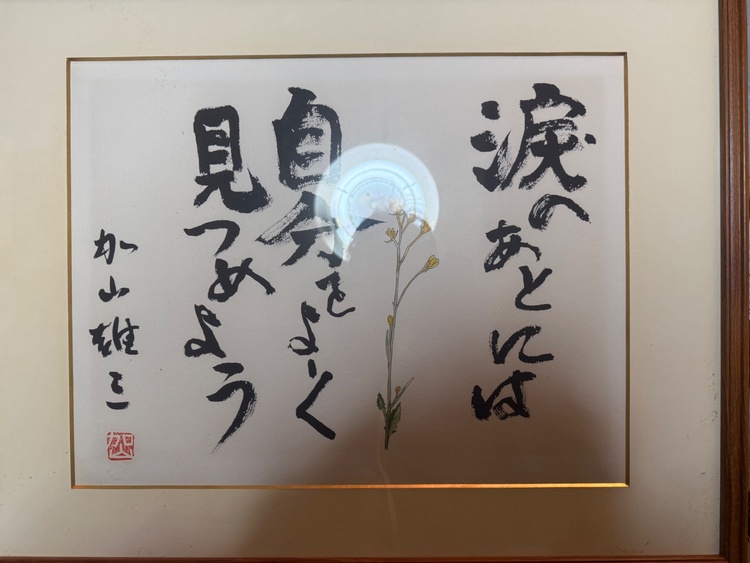 涙のあとには
自分をよーく
見つめよう
加山雄三